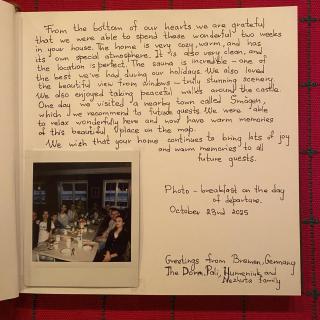 From the bottom of our hearts we are grateful
that we were able to spend these wonderful two weeks
in your house. The home is very cozy, warm, and has
its own special atmosphere. It is also very clean, and
the location is perfect. The sauna is incredible – one of
the best we've had during our holidays. We also loved
the beautiful view from windows – truly stunning scenery.
We also enjoyed taking peaceful walks around the castle.
One day we visited a nearby town called Smögen,
which we recommend to future guests. We were able
to relax wonderfully here and now have warm memories
of this beautiful place on the map.
We wish that your home continues to bring lots of joy
and warm memories to all
future guests.
Photo – breakfast on the day
of departure.
October 23rd 2025
Greetings from Bremen, Germany
The Dorn, Pali, Humeniuk and
family